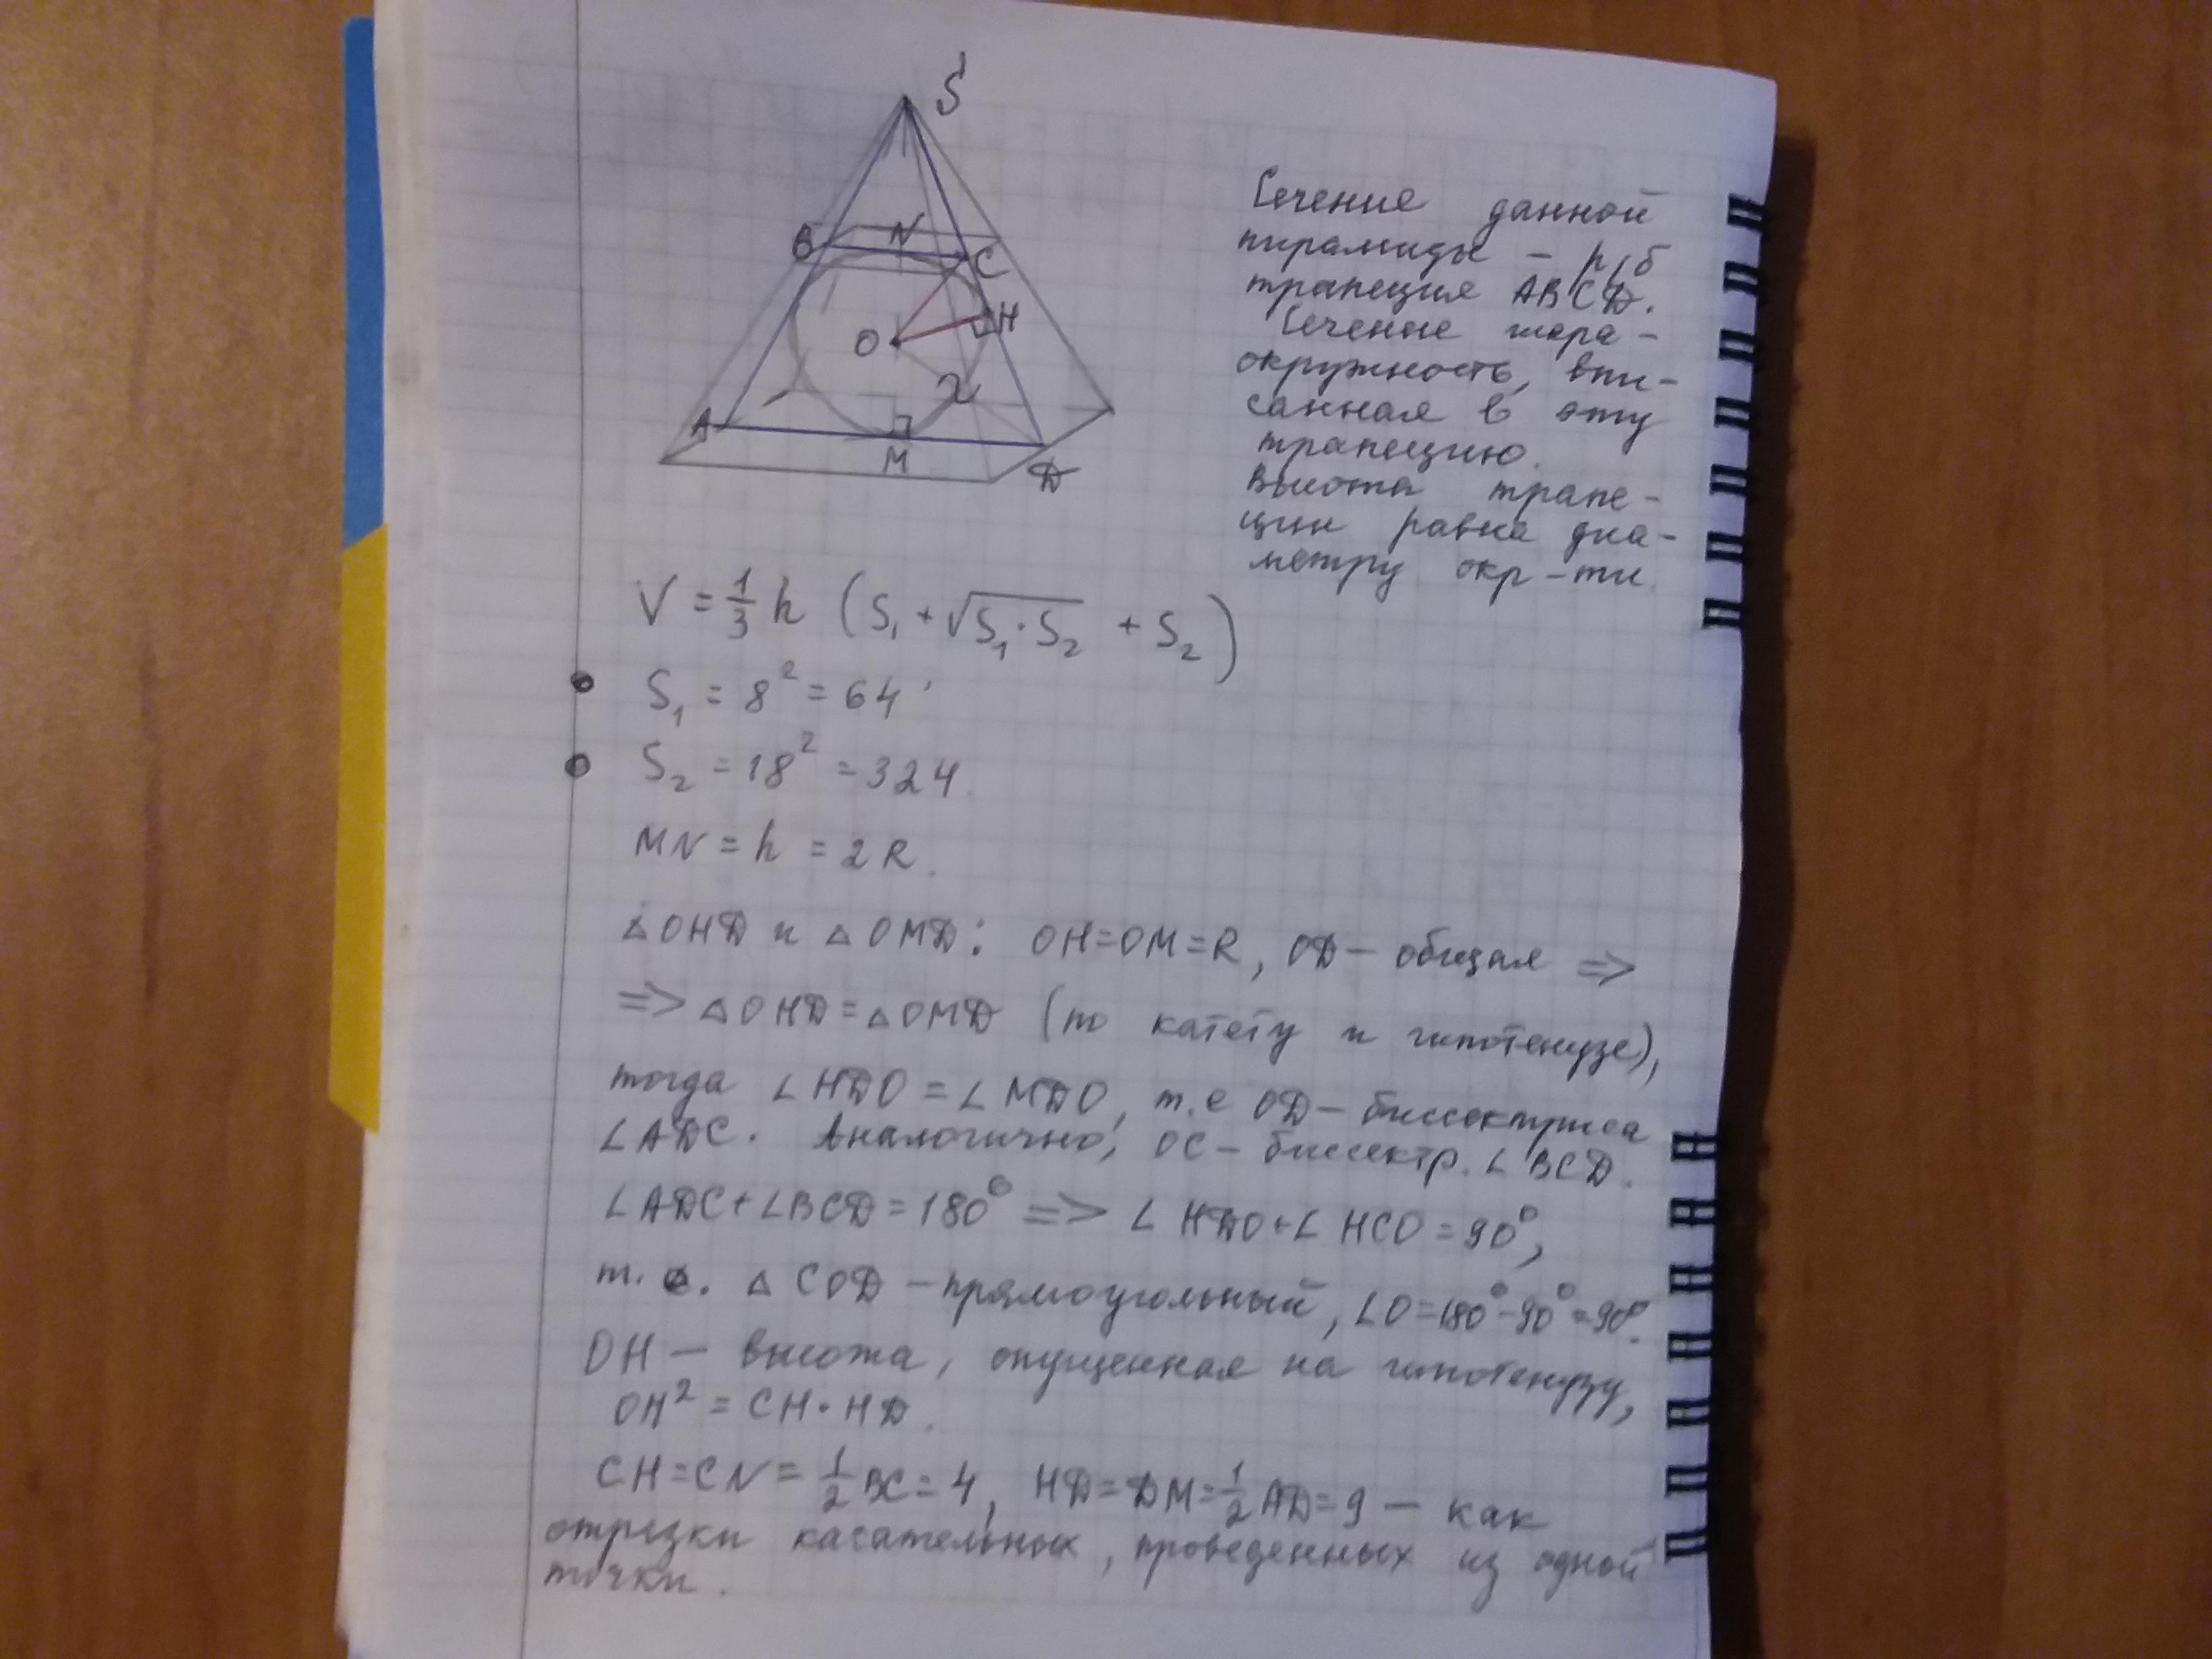 S
B
N
C
O
H
A
M
D
Сечение данной
пирамиды – р/б
трапеция ABCD.
Сечение шара –
окружность, впи-
санная в эту
трапецию.
Высота трапе-
ции равна диа-
метру окр-ти.
V = 1/3 h (S₁ + √(S₁·S₂) + S₂)
S₁ = 8² = 64
S₂ = 18² = 324.
MN = h = 2R.
△OHD и △OMD: OH=OM=R, OD – общая =>
=> △OHD = △OMD (по катету и гипотенузе),
тогда ∠HDO = ∠MDO, т.е OD – биссектриса
∠ADC. Аналогично, OC – биссектр. ∠BCD.
∠ADC+∠BCD = 180° => ∠HDO+∠HCO = 90°,
т.е. △COD – прямоугольный, ∠O=180°-90°=90°.
OH – высота, опущенная на гипотенузу,
OH² = CH·HD.
CH=CN= 1/2 BC=4, HD=DM=1/2 AD=9 – как
отрезки касательных, проведенных из одной
точки.